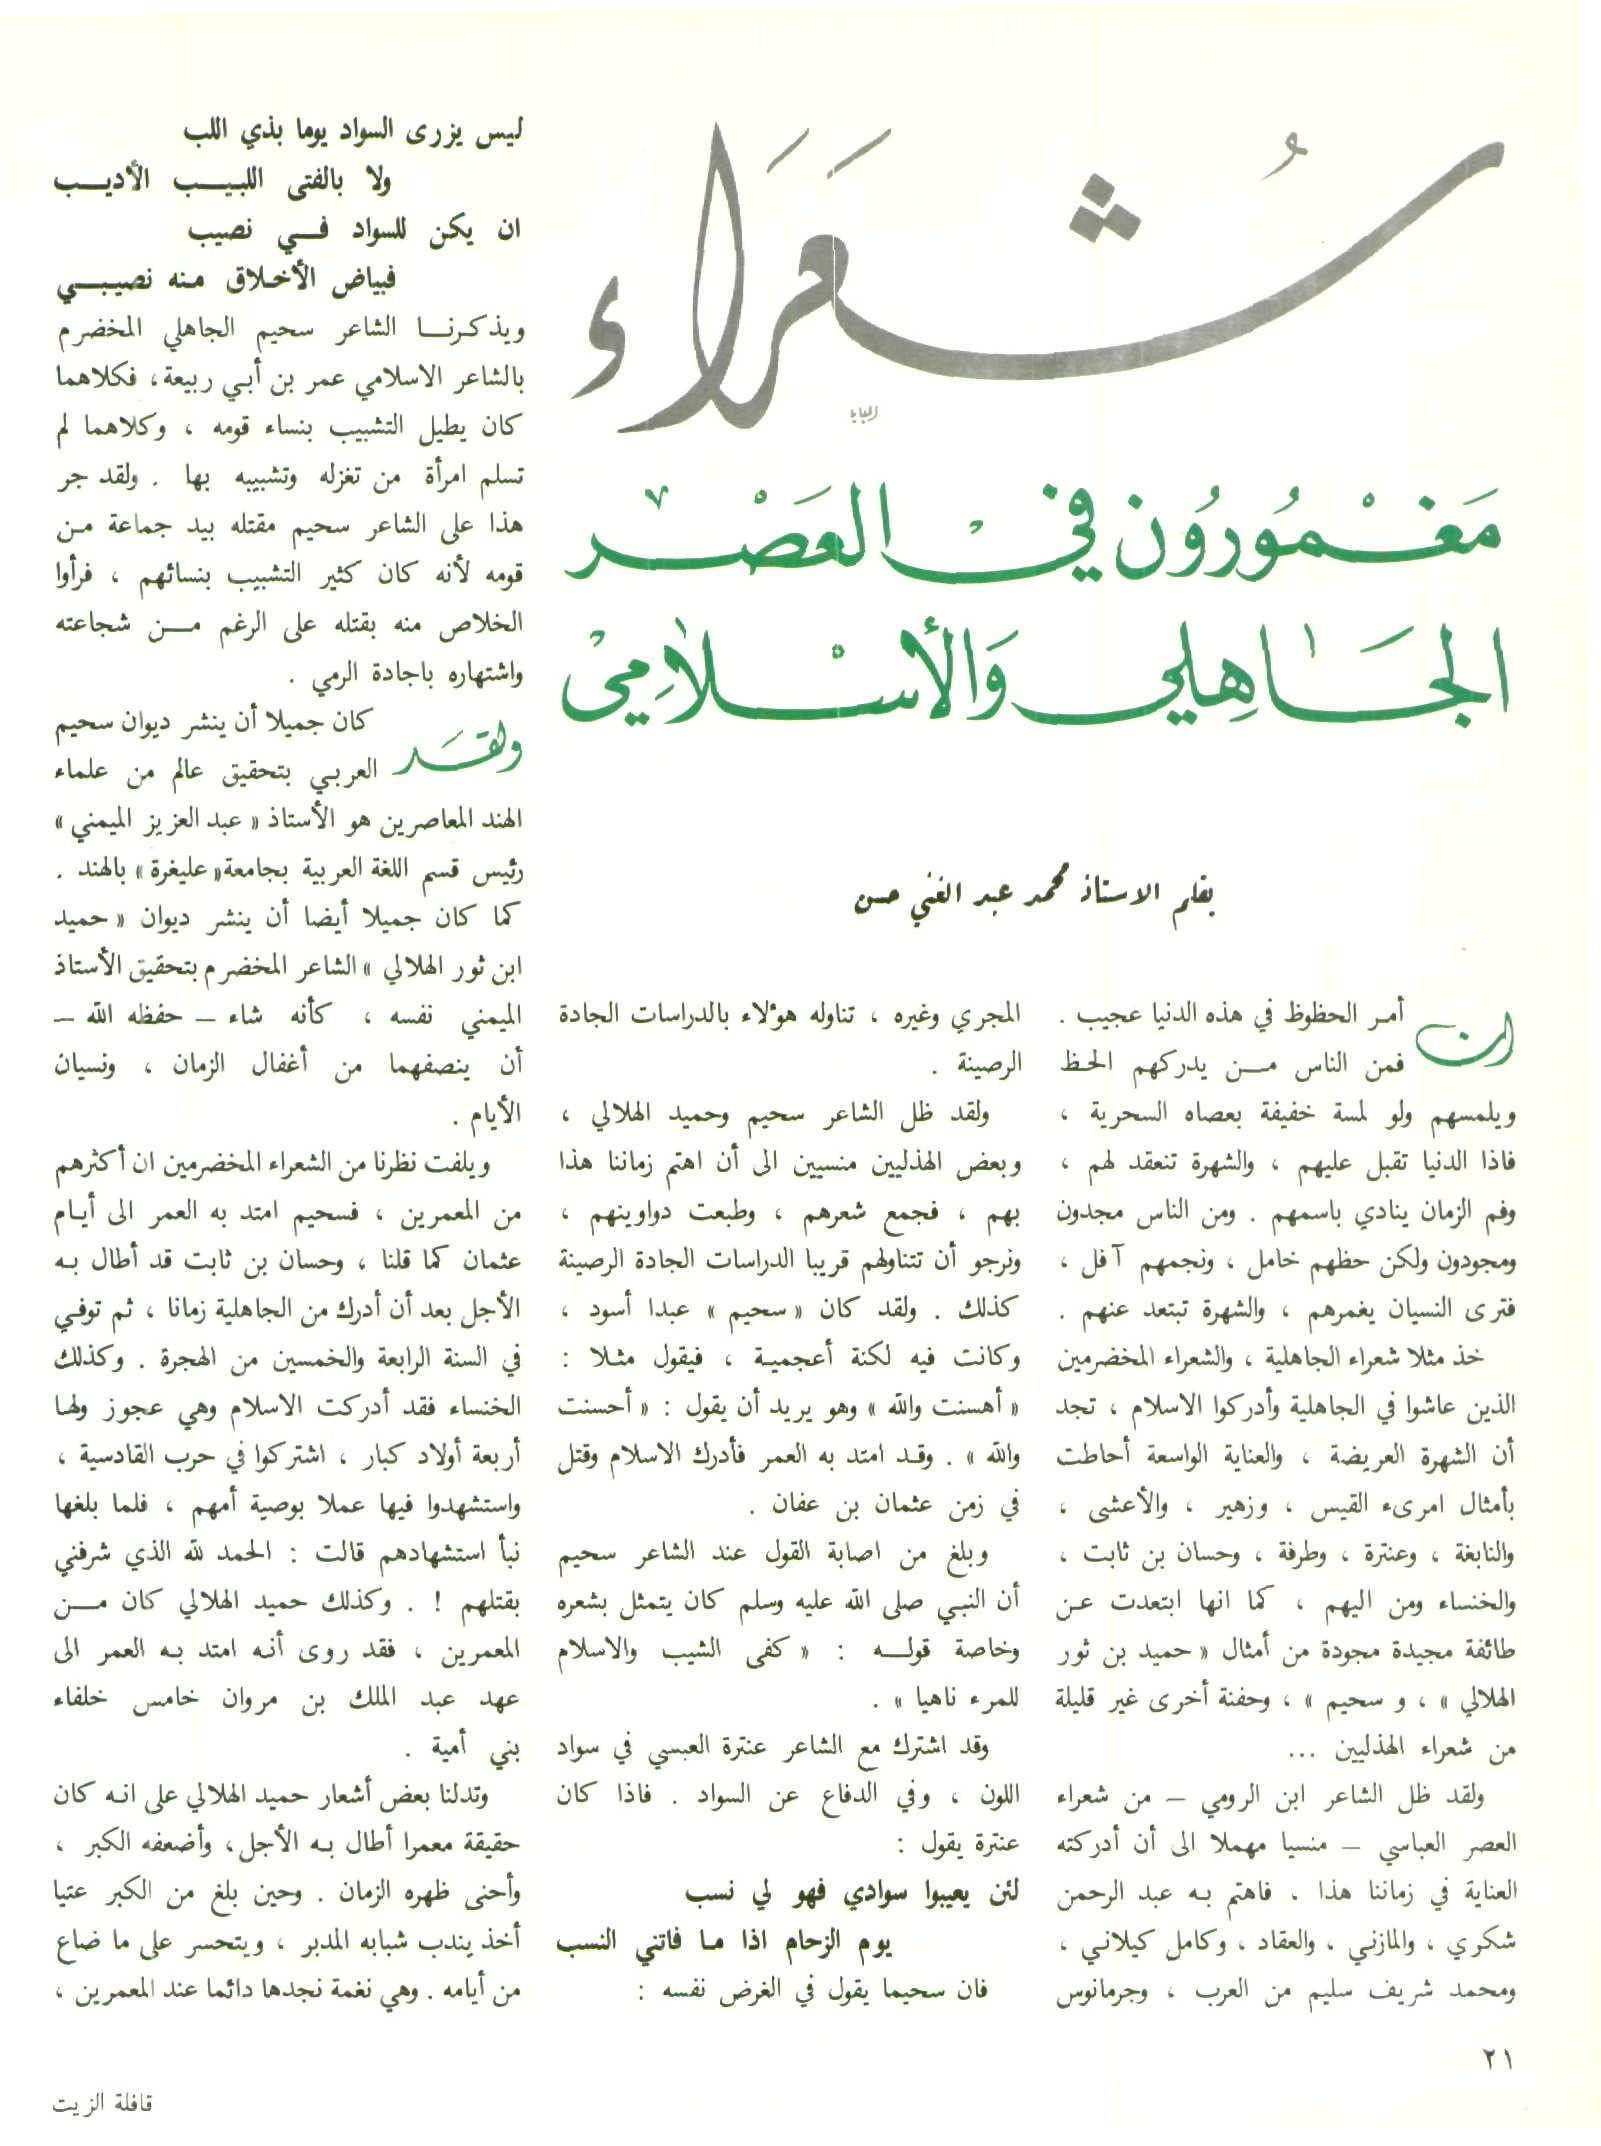 شُعَرَاء
مَغمُورُون في العَصْر
الجَاهِلي وَالأسْلامِي
بقلم الاستاذ محمد عبد الغني حسن
ان أمر الحظوظ في هذه الدنيا عجيب .
فمن الناس من يدركهم الحظ
ويلمسهم ولو لمسة خفيفة بعصاه السحرية ،
فاذا الدنيا تقبل عليهم ، والشهرة تنعقد لهم ،
وفم الزمان ينادي باسمهم . ومن الناس مجدون
ومجودون ولكن حظهم خامل ، ونجمهم آفل ،
فترى النسيان يغمرهم ، والشهرة تبتعد عنهم .
خذ مثلا شعراء الجاهلية ، والشعراء المخضرمين
الذين عاشوا في الجاهلية وأدركوا الاسلام ، تجد
أن الشهرة العريضة ، والعناية الواسعة أحاطت
بأمثال امرىء القيس ، وزهير ، والأعشى ،
والنابغة ، وعنترة ، وطرفة ، وحسان بن ثابت ،
والخنساء ومن اليهم ، كما انها ابتعدت عن
طائفة مجيدة مجودة من أمثال « حميد بن ثور
الهلالي » ، و سحيم » ، وحفنة أخرى غير قليلة
من شعراء الهذليين ...
ولقد ظل الشاعر ابن الرومي – من شعراء
العصر العباسي – منسيا مهملا الى أن أدركته
العناية في زماننا هذا . فاهتم به عبد الرحمن
شكري ، والمازني ، والعقاد ، وكامل كيلاني ،
ومحمد شريف سليم من العرب ، وجرمانوس
المجري وغيره ، تناوله هؤلاء بالدراسات الجادة
الرصينة .
ولقد ظل الشاعر سحيم وحميد الهلالي ،
وبعض الهذليين منسيين الى أن اهتم زماننا هذا
بهم ، فجمع شعرهم ، وطبعت دواوينهم ،
ونرجو أن تتناولهم قريبا الدراسات الجادة الرصينة
كذلك . ولقد كان « سحيم » عبدا أسود ،
وكانت فيه لكنة أعجمية ، فيقول مثلا :
« أهسنت والله » وهو يريد أن يقول : « أحسنت
والله » . وقد امتد به العمر فأدرك الاسلام وقتل
في زمن عثمان بن عفان .
وبلغ من اصابة القول عند الشاعر سحيم
أن النبي صلى الله عليه وسلم كان يتمثل بشعره
وخاصة قوله : « كفى الشيب والاسلام
للمرء ناهيا » .
وقد اشترك مع الشاعر عنترة العبسي في سواد
اللون ، وفي الدفاع عن السواد . فاذا كان
عنترة يقول :
لئن يعيبوا سوادي فهو لي نسب
يوم الزحام اذا ما فاتني النسب
فان سحيما يقول في الغرض نفسه :
ليس يزرى السواد يوما بذي اللب
ولا بالفتى اللبيب الأديب
ان يكن للسواد في نصيب
فبياض الأخلاق منه نصيبي
ويذكرنا الشاعر سحيم الجاهلي المخضرم
بالشاعر الاسلامي عمر بن أبي ربيعة، فكلاهما
كان يطيل التشبيب بنساء قومه ، وكلاهما لم
تسلم امرأة من تغزله وتشبيبه بها . ولقد جر
هذا على الشاعر سحيم مقتله بيد جماعة من
قومه لأنه كان كثير التشبيب بنسائهم ، فرأوا
الخلاص منه بقتله على الرغم من شجاعته
واشتهاره باجادة الرمي .
ولقد كان جميلا أن ينشر ديوان سحيم
العربي بتحقيق عالم من علماء
الهند المعاصرين هو الأستاذ « عبد العزيز الميمني »
رئيس قسم اللغة العربية بجامعة « عليغرة » بالهند .
كما كان جميلا أيضا أن ينشر ديوان « حميد
ابن ثور الهلالي » الشاعر المخضرم بتحقيق الأستاذ
الميمني نفسه ، كأنه شاء – حفظه الله –
أن ينصفهما من أغفال الزمان ، ونسيان
الأيام .
ويلفت نظرنا من الشعراء المخضرمين ان أكثرهم
من المعمرين ، فسحيم امتد به العمر الى أيام
عثمان كما قلنا ، وحسان بن ثابت قد أطال به
الأجل بعد أن أدرك من الجاهلية زمانا ، ثم توفي
في السنة الرابعة والخمسين من الهجرة . وكذلك
الخنساء فقد أدركت الاسلام وهي عجوز ولها
أربعة أولاد كبار ، اشتركوا في حرب القادسية ،
واستشهدوا فيها عملا بوصية أمهم ، فلما بلغها
نبأ استشهادهم قالت : الحمد لله الذي شرفني
بقتلهم ! . وكذلك حميد الهلالي كان من
المعمرين ، فقد روى أنه امتد به العمر الى
عهد عبد الملك بن مروان خامس خلفاء
بني أمية .
وتدلنا بعض أشعار حميد الهلالي على انه كان
حقيقة معمرا أطال به الأجل، وأضعفه الكبر ،
وأحنى ظهره الزمان . وحين بلغ من الكبر عتيا
أخذ يندب شبابه المدبر ، ويتحسر على ما ضاع
من أيامه . وهي نغمة نجدها دائما عند المعمرين ،
٢١
قافلة الزيت